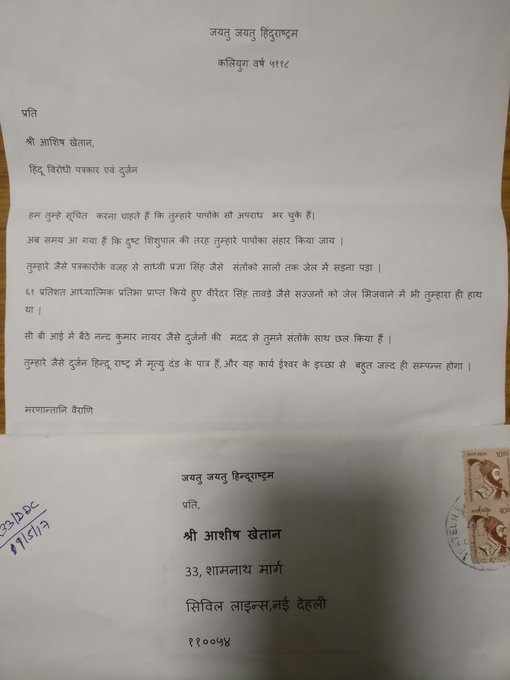 जयतु जयतु हिंदुराष्ट्रम
कलियुग वर्ष ५११८
प्रति
श्री आशिष खेतान,
हिंदू विरोधी पत्रकार एवं दुर्जन
हम तुम्हे सूचित करना चाहते हैं कि तुम्हारे पापोंके सौ अपराध भर चुके हैं।
अब समय आ गया हैं कि दुष्ट शिशुपाल की तरह तुम्हारे पापोंका संहार किया जाय |
तुम्हारे जैसे पत्रकारोंके वजह से साध्वी प्रज्ञा सिंह जैसे संतोंको सालों तक जेल में सड़ना पड़ा |
६१ प्रतिशत आध्यात्मिक प्रतिभा प्राप्त किये हुए वीरेंदर सिंह तावड़े जैसे सज्जनों को जेल भिजवाने में भी तुम्हारा ही हाथ
था |
सी बी आई में बैठे नन्द कुमार नायर जैसे दुर्जनों की मदद से तुमने संतोंके साथ छल किया हैं |
तुम्हारे जैसे दुर्जन हिन्दू राष्ट्र में मृत्यु दंड के पात्र हैं,और यह कार्य ईश्वर के इच्छा से बहुत जल्द ही सम्पन्न होगा |
मरणान्तानि वैराणि
जयतु जयतु हिन्दूराष्ट्रम
प्रति,
श्री आशीष खेतान
33, शामनाथ मार्ग
सिविल लाइन्स,नई देहली
११००५४
33/DDC
19/5/17
1000